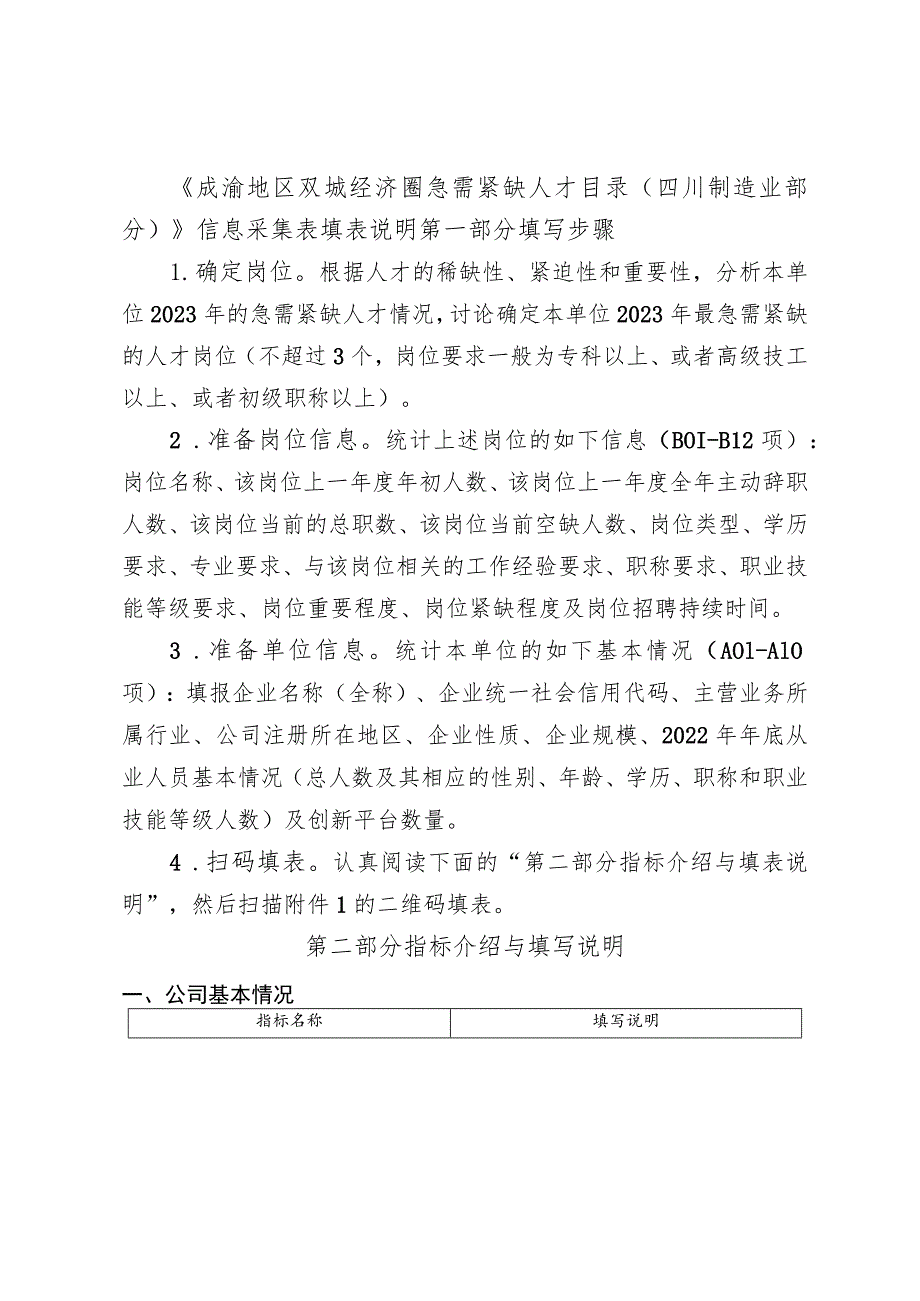 《成渝地区双城经济圈急需紧缺人才目录（四川制造业部
分）》信息采集表填表说明第一部分填写步骤
1.确定岗位。根据人才的稀缺性、紧迫性和重要性，分析本单
位 2023 年的急需紧缺人才情况，讨论确定本单位 2023 年最急需紧缺
的人才岗位（不超过 3 个，岗位要求一般为专科以上、或者高级技工
以上、或者初级职称以上）。
2 .准备岗位信息。统计上述岗位的如下信息（B0I-B12 项）：
岗位名称、该岗位上一年度年初人数、该岗位上一年度全年主动辞职
人数、该岗位当前的总职数、该岗位当前空缺人数、岗位类型、学历
要求、专业要求、与该岗位相关的工作经验要求、职称要求、职业技
能等级要求、岗位重要程度、岗位紧缺程度及岗位招聘持续时间。
3 .准备单位信息。统计本单位的如下基本情况（A0l-Al0
项）：填报企业名称（全称）、企业统一社会信用代码、主营业务所
属行业、公司注册所在地区、企业性质、企业规模、2022 年年底从
业人员基本情况（总人数及其相应的性别、年龄、学历、职称和职业
技能等级人数）及创新平台数量。
4 .扫码填表。认真阅读下面的“第二部分指标介绍与填表说
明”，然后扫描附件 1 的二维码填表。
第二部分指标介绍与填写说明
一、公司基本情况
指标名称 填写说明